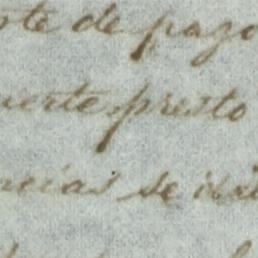 rte de pago
uerte presto
ncias se